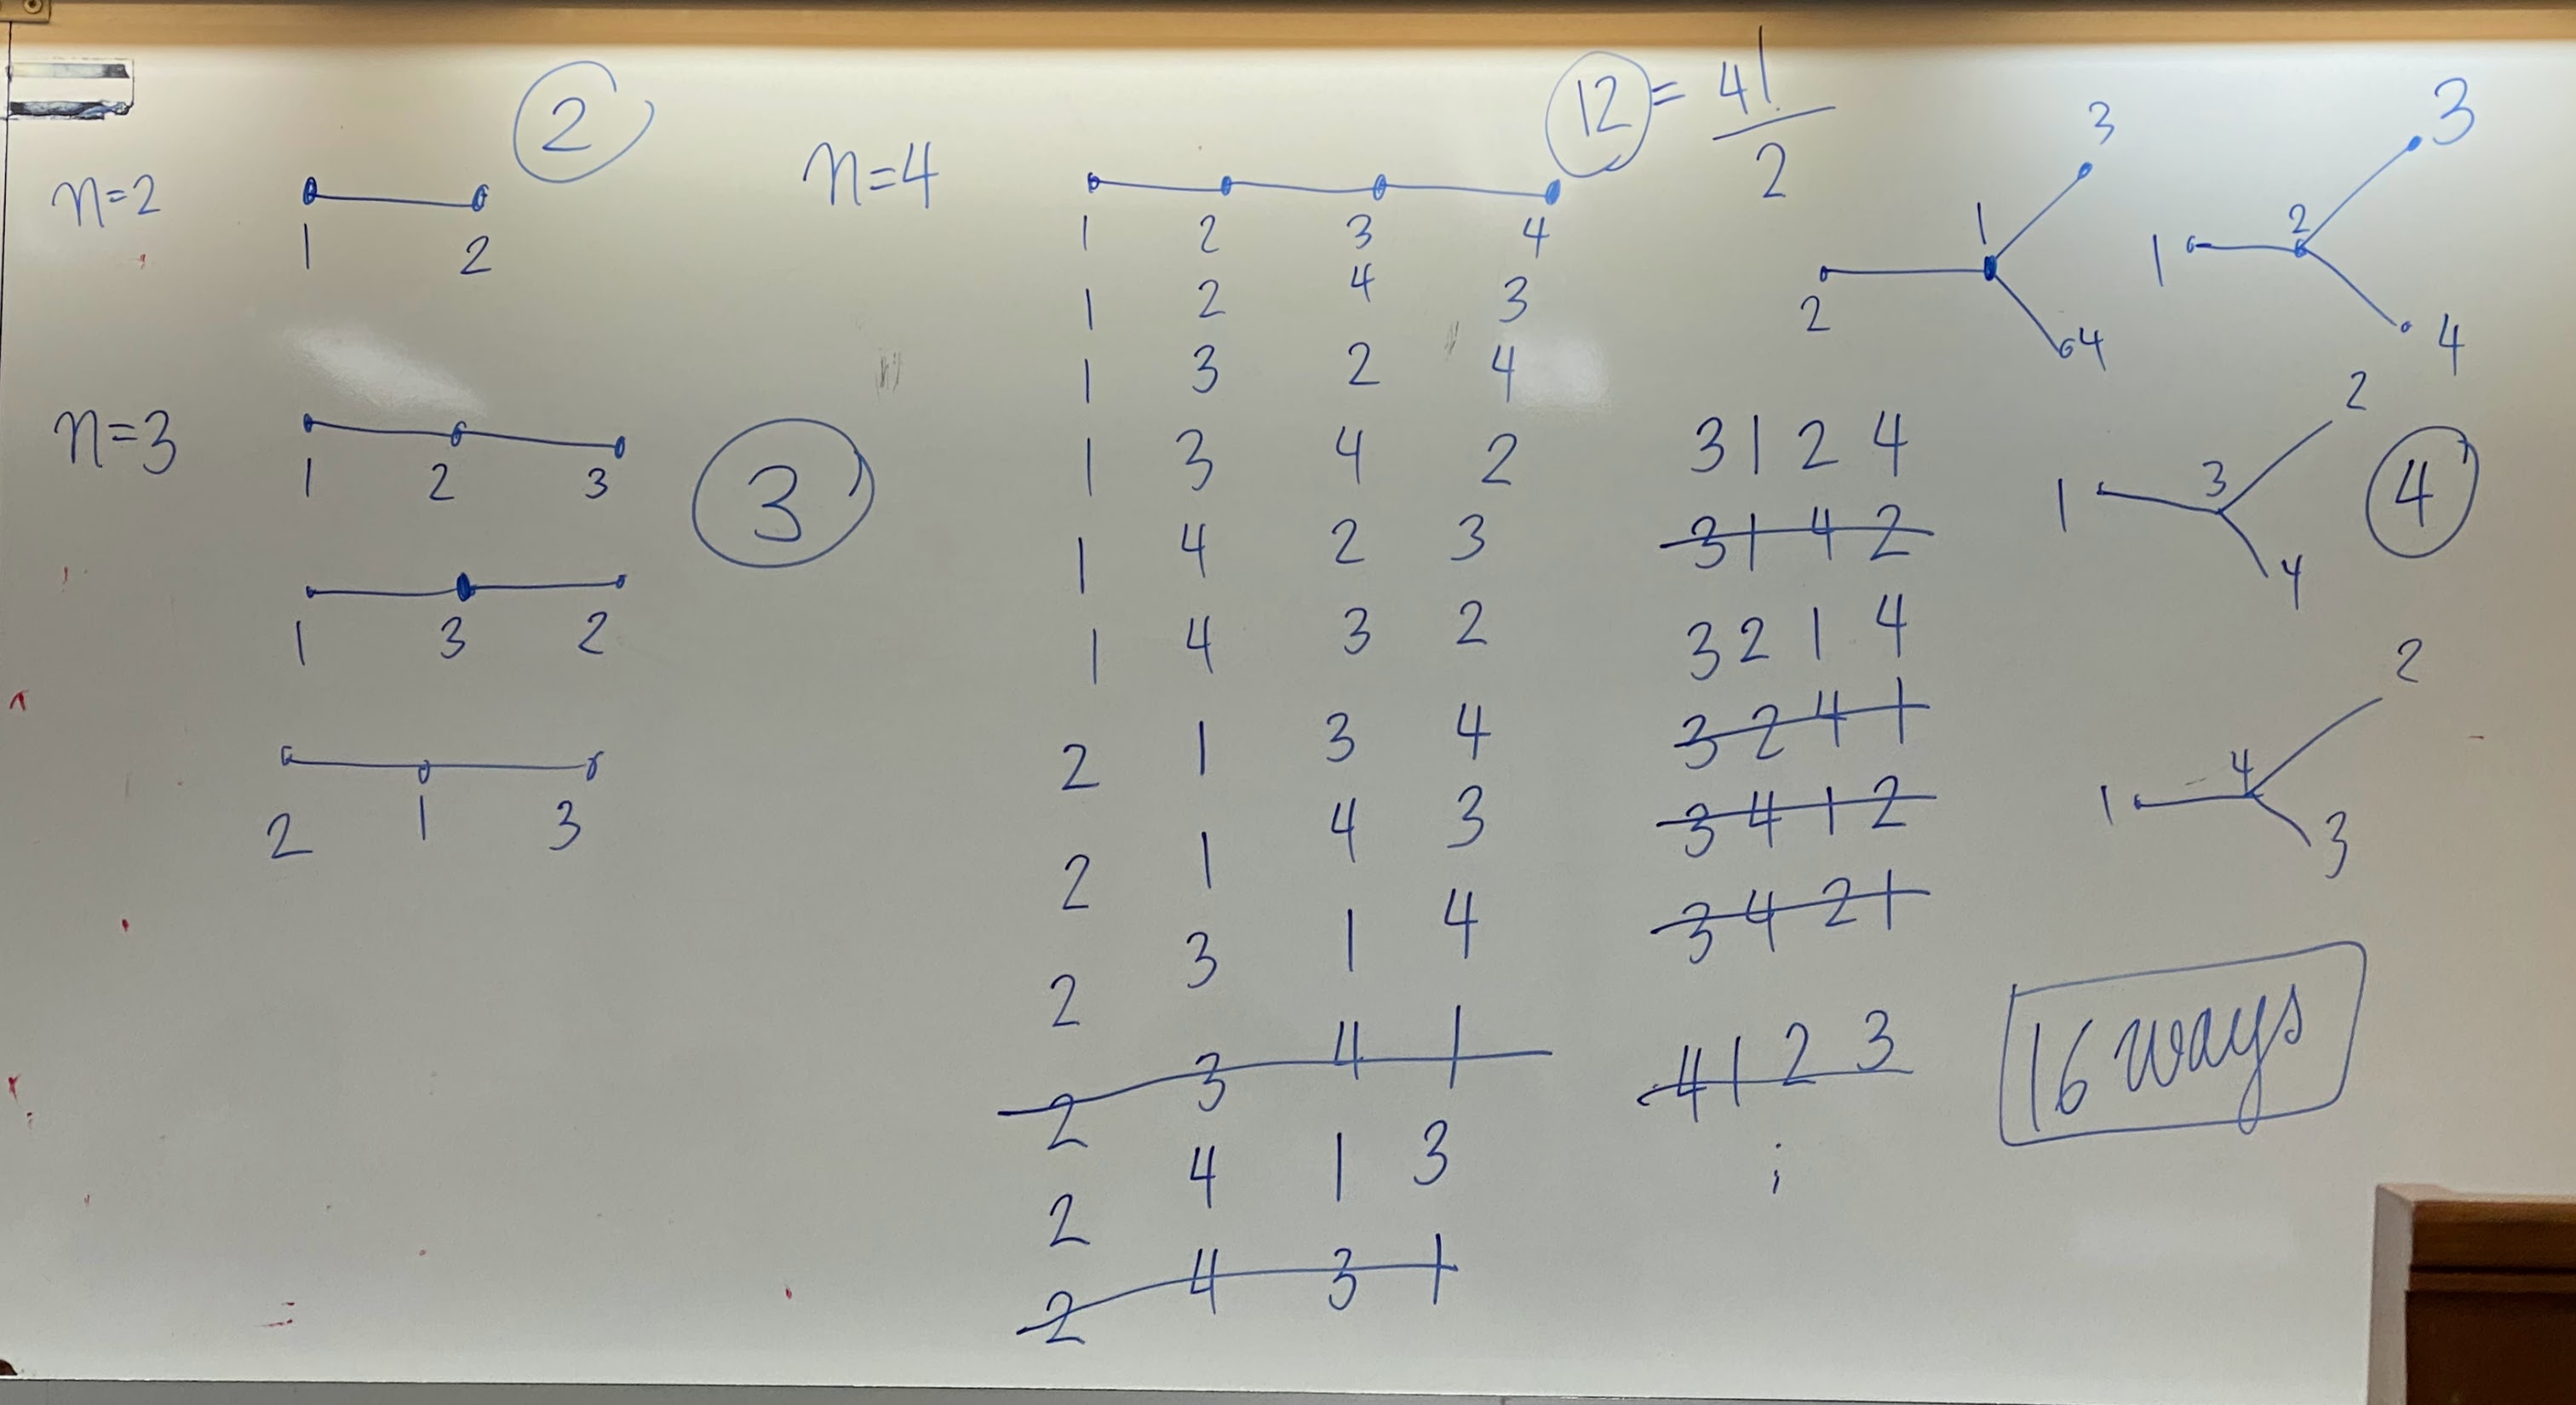 n=2
2
1 2
n=3
1 2 3
3
1 3 2
2 1 3
n=4
12 = 4!/2
1 2 3 4
1 2 4 3
1 3 2 4
1 3 4 2
1 4 2 3
1 4 3 2
2 1 3 4
2 1 4 3
2 3 1 4
2 3 4 1
2 4 1 3
2 4 3 1
3 1 2 4
3 1 4 2
3 2 1 4
3 2 4 1
3 4 1 2
3 4 2 1
4 1 2 3
⋮
3
1
2
4
3
2
1
4
2
3
1
4
4
2
4
1
3
16 ways